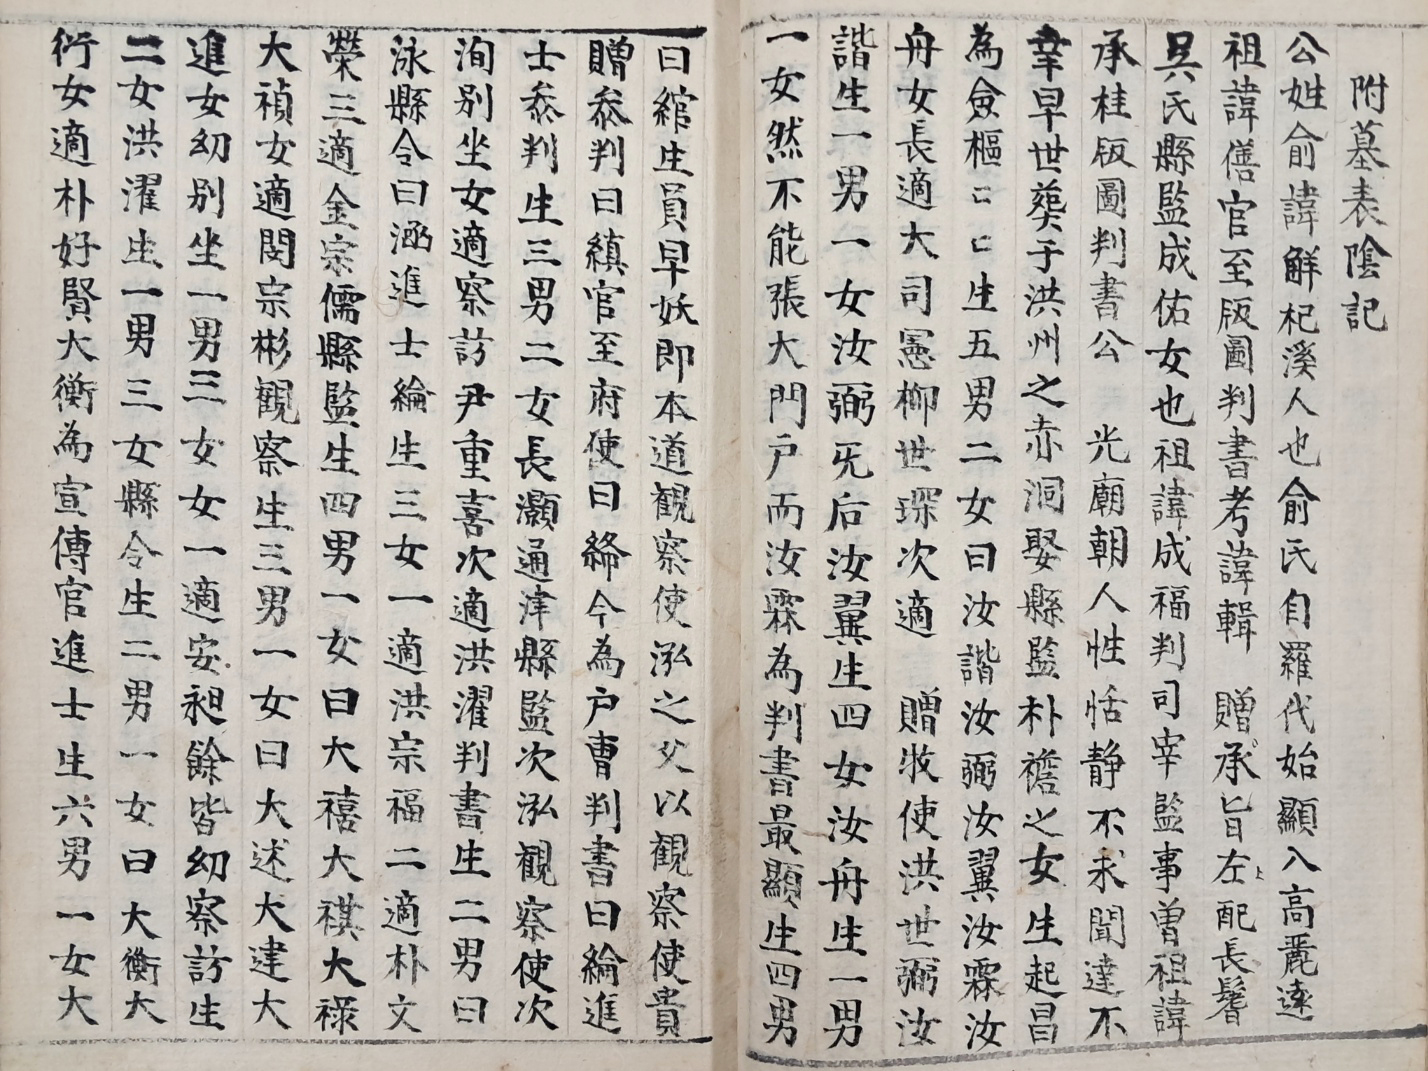 附墓表陰記
公姓俞諱觧杞溪人也俞氏自羅代始顯入高麗逺
祖諱僐官至版圖判書考諱輯 贈承旨左配長鬐
吴氏縣監成佑女也祖諱成福判司宰監事曾祖諱
承桂版圖判書公 光廟朝人性恬静不求聞達不
幸早世葬于洪州之赤洞娶縣監朴襜之女生起昌
為僉樞〻〻生五男二女曰汝諧汝弼汝翼汝霖汝
舟女長適大司憲柳世琛次適 贈牧使洪世弼汝
諧生一男一女汝弼旡后汝翼生四女汝舟生一男
一女然不能張大門户而汝霖為判書最顯生四男
曰綰生員早妖即本道觀察使泓之父以觀察使貴
贈叅判曰縝官至府使曰絳今為户曹判書曰綸進
士叅判生三男二女長灝通津縣監次泓觀察使次
洵别坐女適察訪尹重喜次適洪濯判書生二男曰
泳縣令曰涵進士綸生三女一適洪宗福二適朴文
榮三適金宗儒縣監生四男一女曰大禧大祺大祿
大禎女適閔宗彬觀察生三男一女曰大述大建大
進女幼别坐一男三女女一適安昶餘皆幼察訪生
二女洪濯生一男三女縣令生二男一女曰大衢大
衍女適朴好賢大衡為宣傳官進士生六男一女大